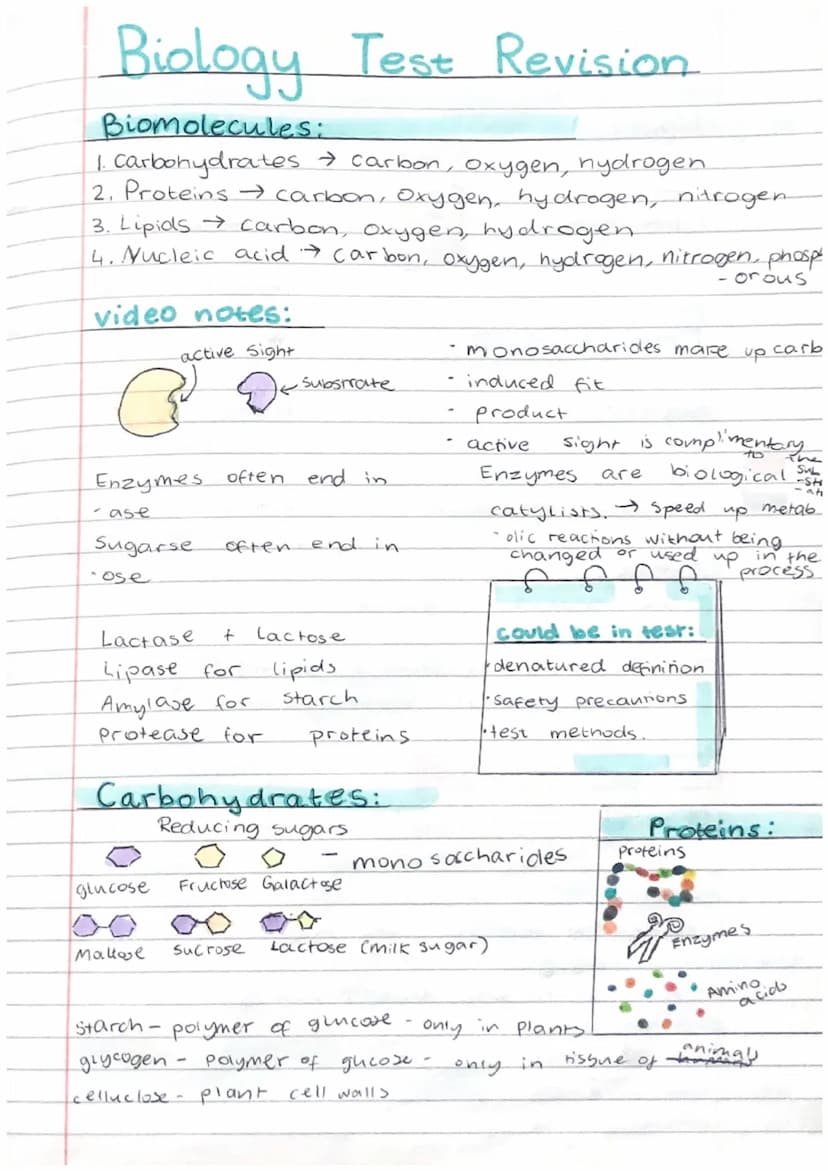 Biology Test Revision
Biomolecules:
1. Carbohydrates → carbon, oxygen, hydrogen
2. Proteins → carbon, oxygen, hydrogen, nitrogen
3. Lipids → carbon, oxygen, hydrogen
4. Nucleic acid → carbon, oxygen, hydrogen, nitrogen, phosph
-orous
video notes:
active sight
substrate
Enzymes often end in
-ase
Sugarse often end in
-ose
Lactase + lactose
Lipase for lipids
Amylase for starch
Protease for proteins
· monosaccharides make up carb
· induced fit
· product
· active sight is complimentary
to the
sub
-str
-ate
Enzymes are biological
catylists. → speed up metab
-olic reactions without being
changed or used up in the
process
could be in test:
·denatured definition
·safety precautions
·test methods.
Carbohydrates:
Reducing sugars
- monosaccharides
glucose Fructose Galactose
Maltose sucrose Lactose (milk sugar)
Proteins:
proteins
Enzymes
Amino
acids
Starch - polymer of glucose - only in plants
glycogen - polymer of glucose - only in tissue of animals
celluclose - plant cell walls